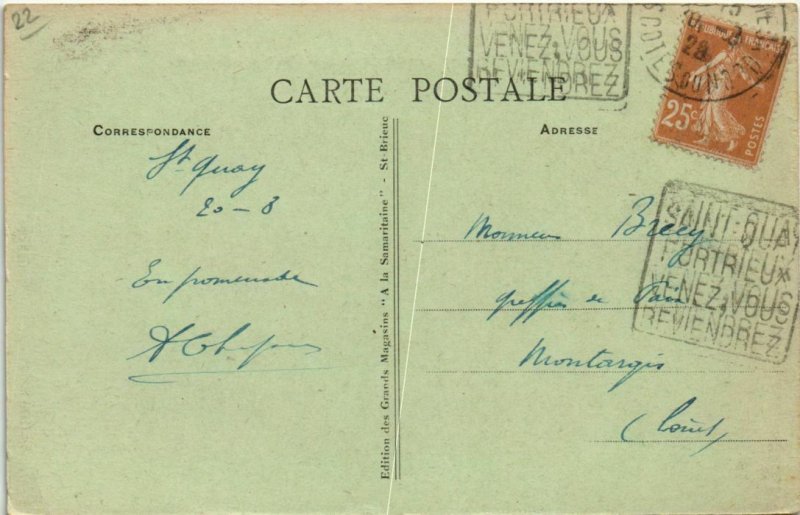 22
PORTRIEUX
VENEZ, VOUS
REVIENDREZ
28
RÉPUBLIQUE FRANÇAISE
25c
POSTES
CARTE POSTALE
CORRESPONDANCE
ADRESSE
St Quay
20-8
En promenade
Edition des Grands Magasins "A la Samaritaine" - St-Brieuc
Monsieur
greffier de Paix
Montargis
(Loiret)
SAINT-QUAY
PORTRIEUX
VENEZ, VOUS
REVIENDREZ